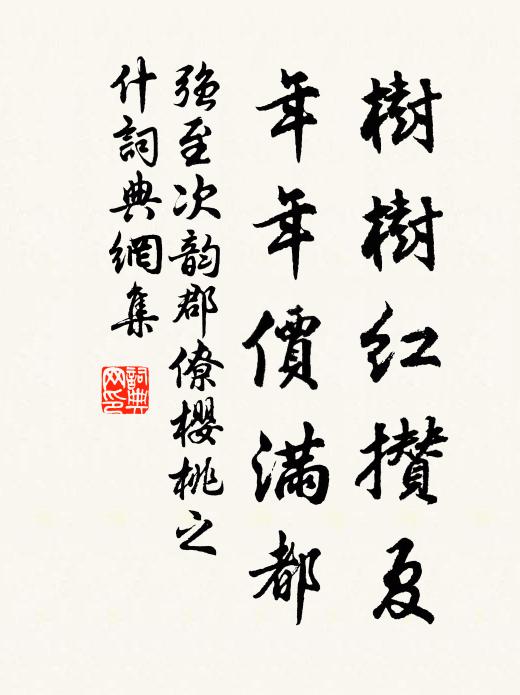 樹樹紅攢夏
年年價滿都
強至次韵郡僚櫻桃之
什詞典網集
詞典网印